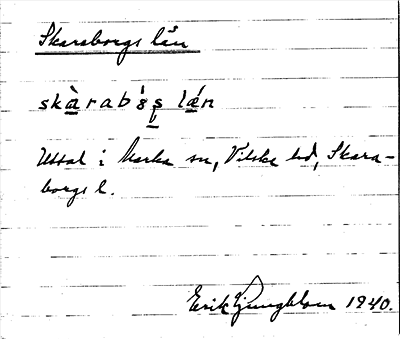 Skaraborgs län
skàrabòs̩ lǽn
Uttal i Marka sn, Vilske hd, Skara-
borgs l.
Erik Ljungblom 1940.